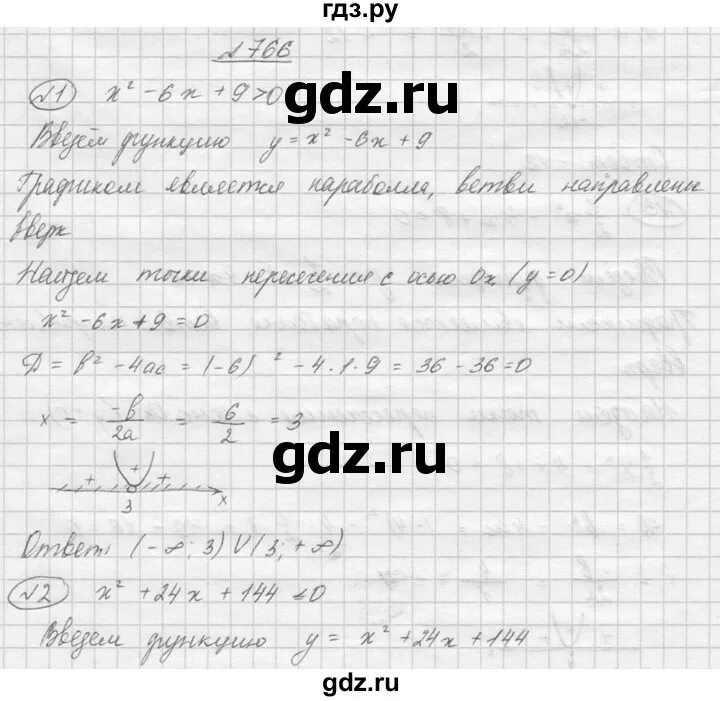 гдз.ру
№766
№1 x² - 6x + 9 > 0
gdz.ru
Введём функцию y = x² - 6x + 9
Графиком является параболла, ветви направлени
вверх
Найдем точки пересечения с осью Ox (y = 0)
x² - 6x + 9 = 0
gdz.ru
D = b² - 4ac = (-6)² - 4·1·9 = 36 - 36 = 0
x = -b/2a = 6/2 = 3
gdz.ru
+ + +
3 x
Ответ: (-∞; 3) ∪ (3; +∞)
№2 x² + 24x + 144 ≤ 0
gdz.ru
Введем функцию y = x² + 24x + 144
gdz.ru